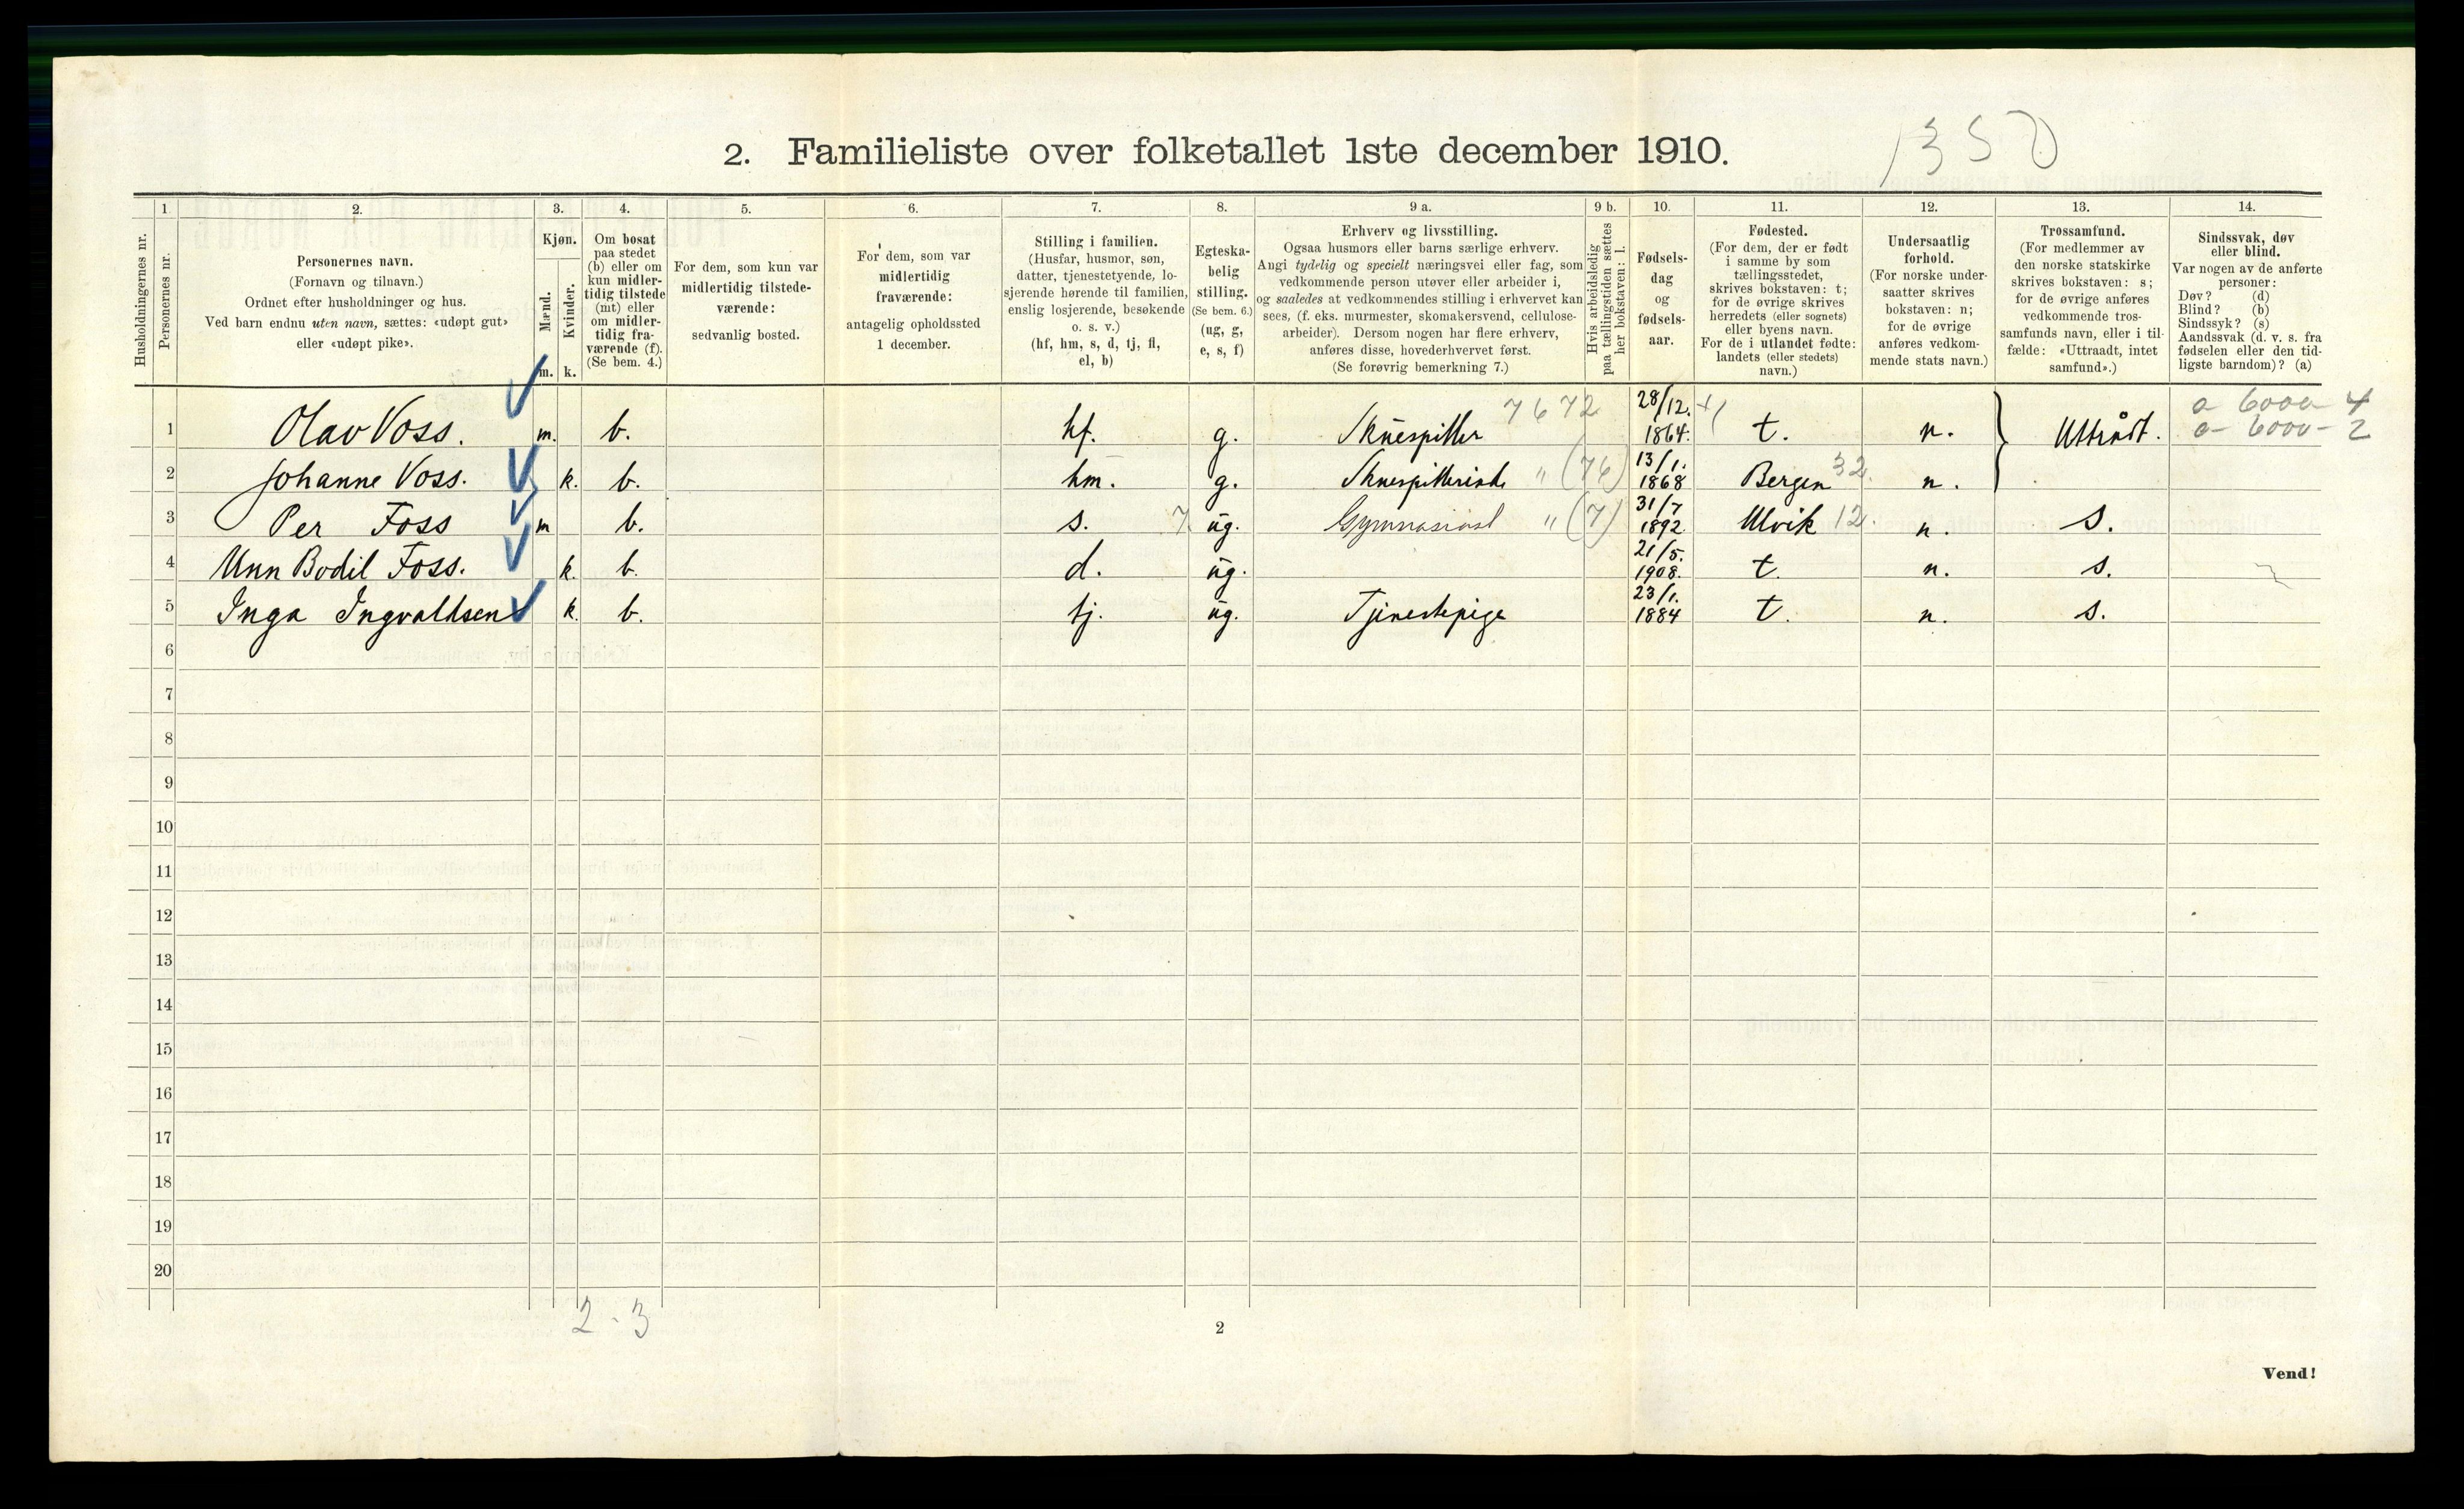 1350
2. Familieliste over folketallet 1ste december 1910.
1. 2. 3. 4. 5. 6. 7. 8. 9 a. 9 b. 10. 11. 12. 13. 14.
Husholdningernes nr.
Personernes nr.
Personernes navn.
(Fornavn og tilnavn.)
Ordnet efter husholdninger og hus.
Ved barn endnu uten navn, sættes: «udøpt gut»
eller «udøpt pike».
Kjøn.
Mænd.
Kvinder.
m. k.
Om bosat
paa stedet
(b) eller om
kun midler-
tidig tilstede
(mt) eller
om midler-
tidig fra-
værende (f).
(Se bem. 4.)
For dem, som kun var
midlertidig tilstede-
værende:
sedvanlig bosted.
For dem, som var
midlertidig
fraværende:
antagelig opholdssted
1 december.
Stilling i familien.
(Husfar, husmor, søn,
datter, tjenestetyende, lo-
sjerende hørende til familien,
enslig losjerende, besøkende
o. s. v.)
(hf, hm, s, d, tj, fl,
el, b)
Egteska-
belig
stilling.
(Se bem. 6.)
(ug, g,
e, s, f)
Erhverv og livsstilling.
Ogsaa husmors eller barns særlige erhverv.
Angi tydelig og specielt næringsvei eller fag, som
vedkommende person utøver eller arbeider i,
og saaledes at vedkommendes stilling i erhvervet kan
sees, (f. eks. murmester, skomakersvend, cellulose-
arbeider). Dersom nogen har flere erhverv,
anføres disse, hovederhvervet først.
(Se forøvrig bemerkning 7.)
Hvis arbeidsledig
paa tællingstiden sættes
her bokstaven: l.
Fødsels-
dag
og
fødsels-
aar.
Fødested.
(For dem, der er født
i samme by som
tællingsstedet,
skrives bokstaven: t;
for de øvrige skrives
herredets (eller sognets)
eller byens navn.
For de i utlandet fødte:
landets (eller stedets)
navn.)
Undersaatlig
forhold.
(For norske under-
saatter skrives
bokstaven: n;
for de øvrige
anføres vedkom-
mende stats navn.)
Trossamfund.
(For medlemmer av
den norske statskirke
skrives bokstaven: s;
for de øvrige anføres
vedkommende tros-
samfunds navn, eller i til-
fælde: «Uttraadt, intet
samfund».)
Sindssvak, døv
eller blind.
Var nogen av de anførte
personer:
Døv? (d)
Blind? (b)
Sindssyk? (s)
Aandssvak (d. v. s. fra
fødselen eller den tid-
ligste barndom)? (a)
1 Olav Voss. m. b. hf. g. Skuespiller 7672 28/12. 1864. t. n. Uttrådt. a 6000 4
a- 6000- 2
2 Johanne Voss. k. b. hm. g. Skuespillerinde " (76) 13/1. 1868 Bergen 32 n.
3 Per Foss m b. s. 7 ug. Gymnasiast " (7) 31/7 1892. Ulvik 12. n. s.
4 Unn Bodil Foss. k. b. d. ug. 21/5. 1908. t. n. s.
5 Inga Ingvaldsen k. b. tj. ug. Tjenestepige 23/1. 1884 t. n. s.
6
7
8
9
10
11
12
13
14
15
16
17
18
19
20
2 - 3
2
Vend!